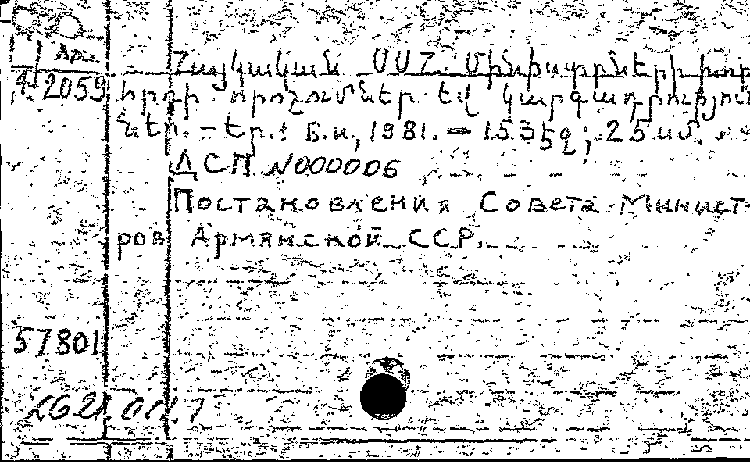 Арм
Հայկական ՍՍՀ Մինիստրների խոր-
4. 2059 հրդի որոշումներ եվ կարգադրություն-
ներ. – Եր.: Б. и., 1981. – 153 էջ; 25 սմ.
ДСП №000006
Постановления Совета Минист-
ров Армянской ССР.
57801